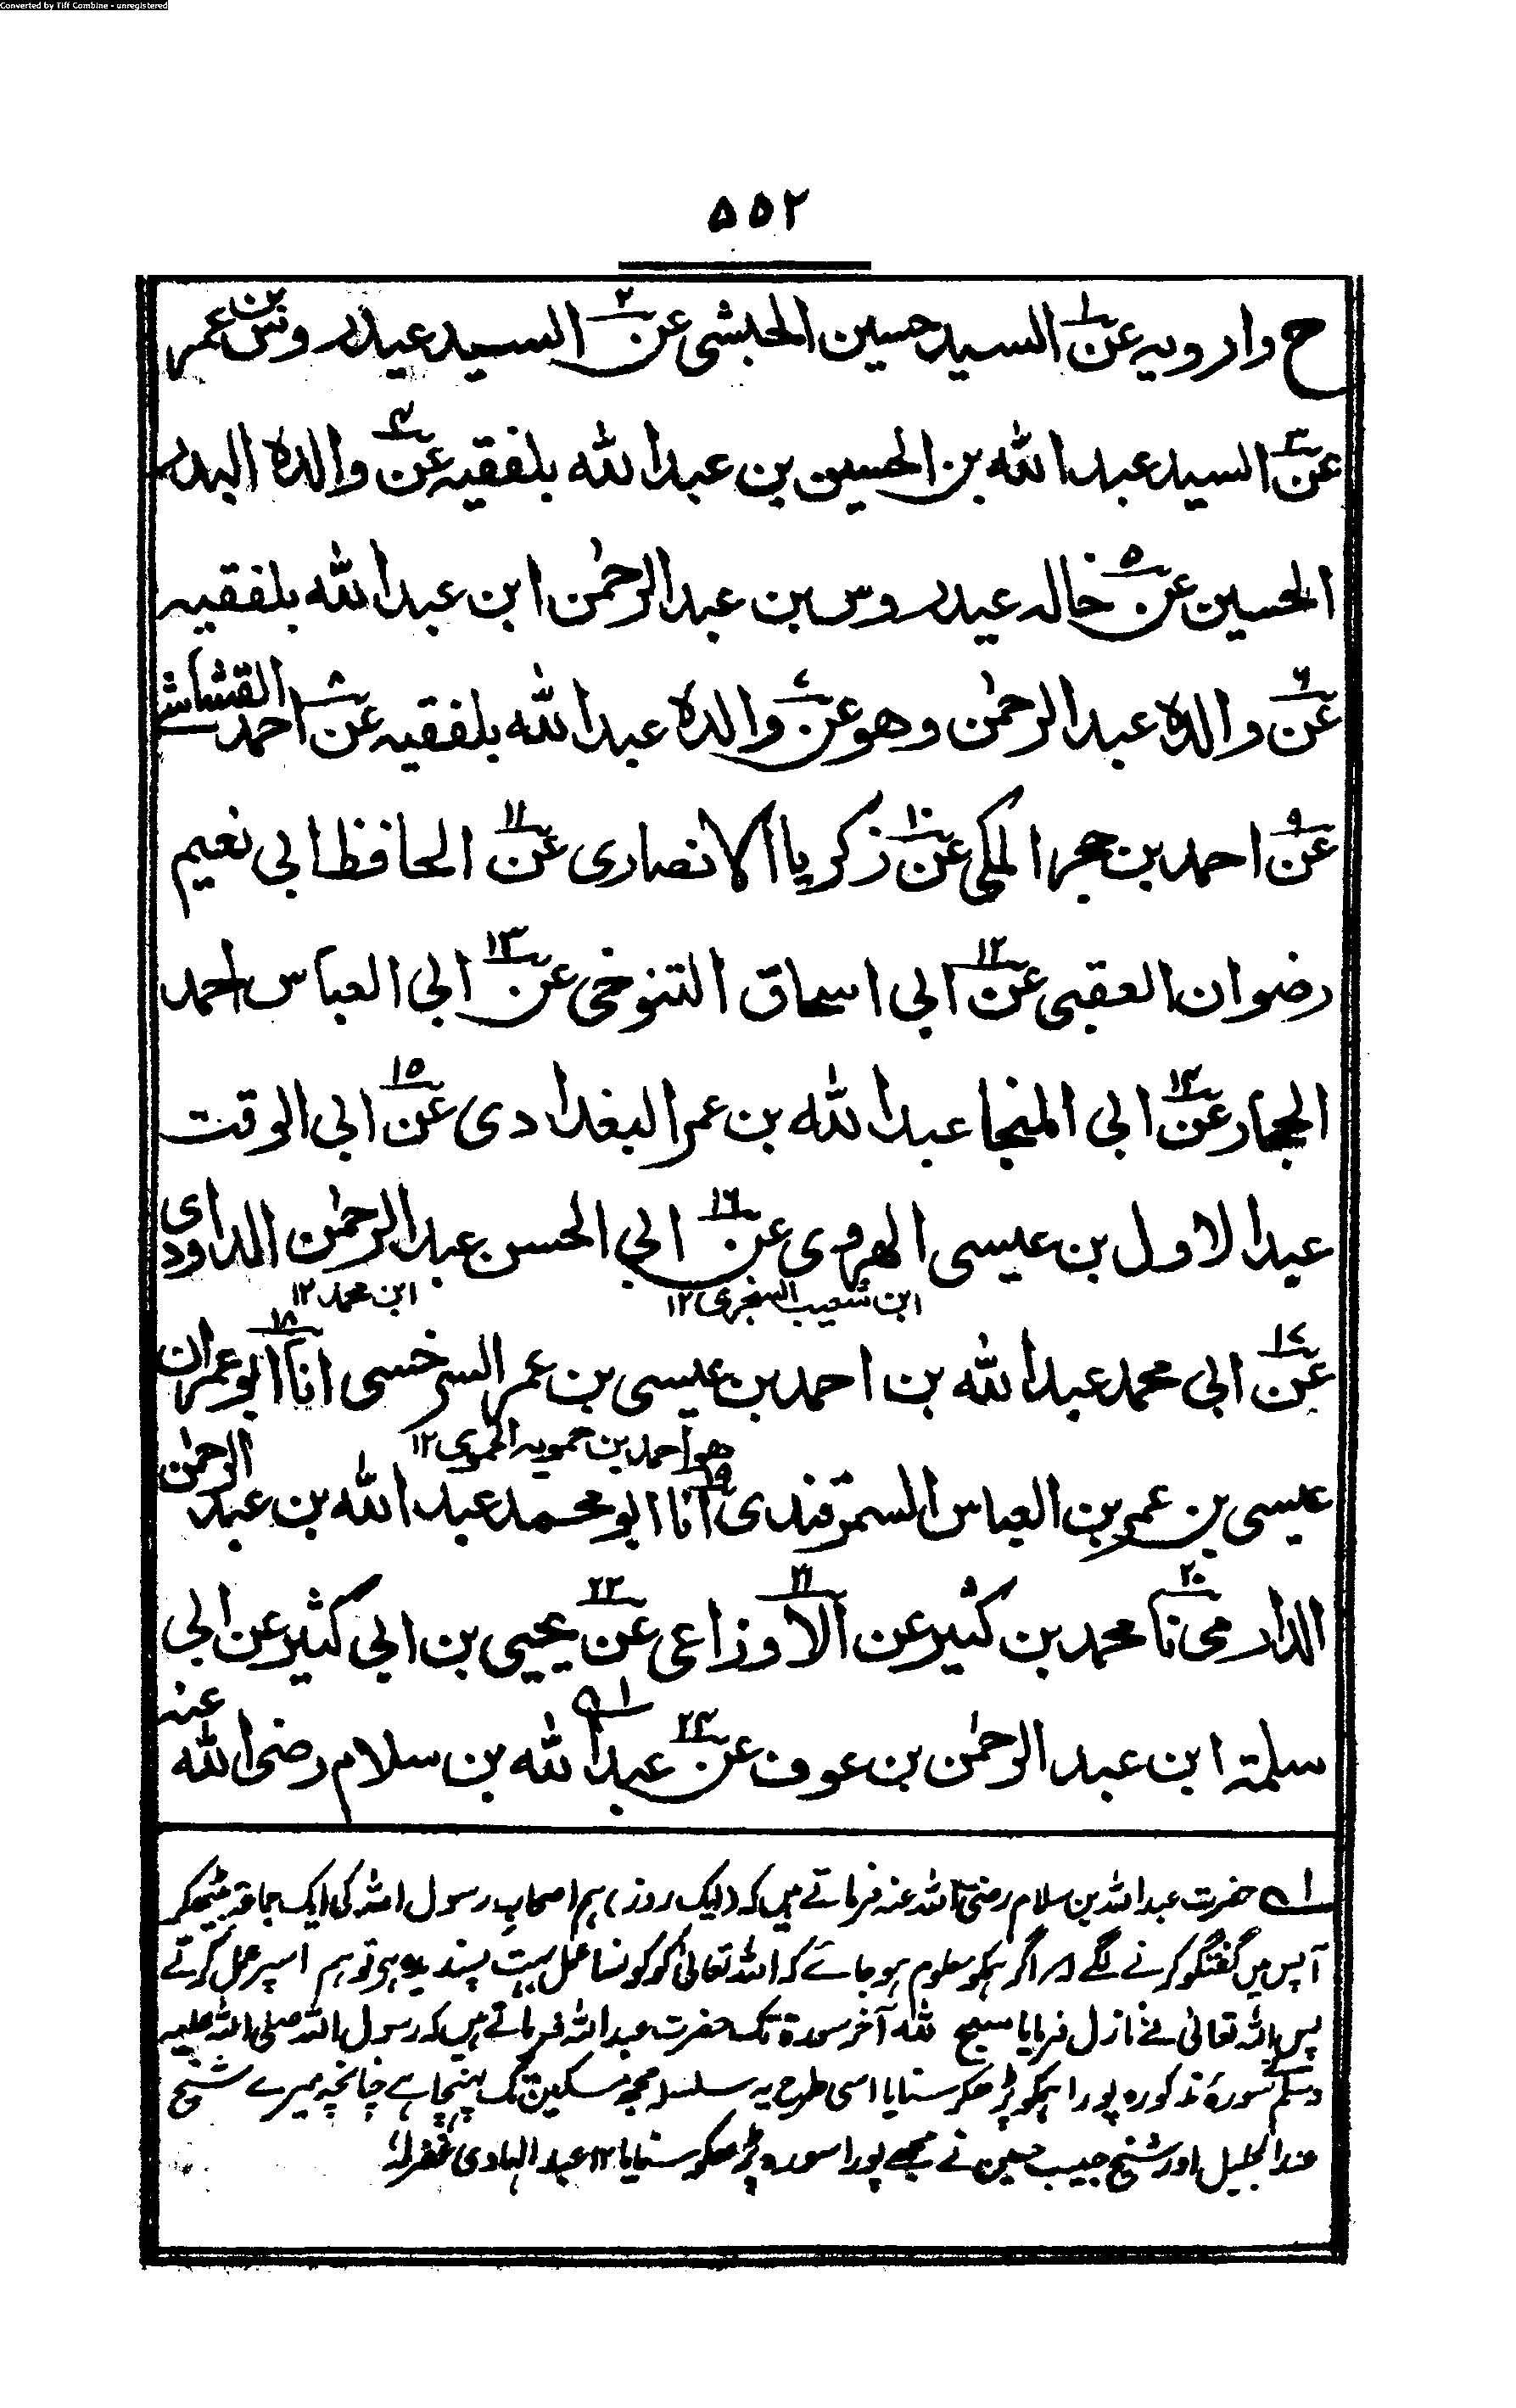 Converted by Tiff Combine - unregistered
٥٥٢
ح وارويه عن١ السيد حسين الحبشى عن٢ السيد عيدروس بن عمر
عن٣ السيد عبد الله بن الحسين بن عبد الله بلفقيه عن٤ والده البدر
الحسين عن٥ خاله عيدروس بن عبد الرحمٰن ابن عبد الله بلفقيه
عن٦ والده عبد الرحمٰن وهو عن٧ والده عبد الله بلفقيه عن٨ احمد القشاشى
عن٩ احمد بن حجر المكى عن١٠ زكريا الانصارى عن١١ الحافظ ابى نعيم
رضوان العقبى عن١٢ ابى اسحاق التنوخى عن١٣ ابى العباس احمد
الحجار عن١٤ ابى المنجا عبد الله بن عمر البغدادى عن١٥ ابى الوقت
عبد الاول بن عيسى الهروى عن١٦ ابى الحسن عبد الرحمٰن الداودى
ابن شعيب السنجرى ١٢ ابن محمد ١٢
عن١٧ ابى محمد عبد الله بن احمد بن عيسى بن عمر السرخسى انا١٨ ابو عمران
هو احمد بن حمويه الحموى ١٢
عيسى بن عمر بن العباس السمرقندى انا١٩ ابو محمد عبد الله بن عبد الرحمٰن
الدارمى نا٢٠ محمد بن كثير عن٢١ الاوزاعى عن٢٢ يحيى بن ابى كثير عن ابى
سلمة ابن عبد الرحمٰن بن عوف عن٢٤ عبد الله ا؎ بن سلام رضى الله عنه
ا؎ حضرت عبد اللہ بن سلام رضی اللہ عنہ فرماتے ہیں کہ (ایک روز) ہم اصحابِ رسول اللہ کی ایک جماعۃ بیٹھکر
آپس میں گفتگو کرنے لگے اگر ہمکو معلوم ہو جائے کہ اللہ تعالیٰ کو کونسا عمل بہت پسندیدہ ہی تو ہم اسپر عمل کرتے
پس اللہ تعالیٰ نے نازل فرمایا سبح للہ آخر سورۃ تک حضرت عبد اللہ فرماتے ہیں کہ رسول اللہ صلی اللہ علیہ
وسلم نے سورۂ مذکورہ پورا ہمکو پڑھکر سنایا اسی طرح یہ سلسلہ مجھ مسکین تک پہنچا ہے چنانچہ میرے شیخ
عبد الجلیل اور شیخ حبیب حسین نے مجھے پورا سورہ پڑھکر سنایا ١٢ عبد الہادی غفرلہٗ